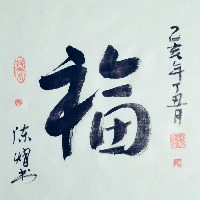 己亥年丁丑月
福
陈熠书